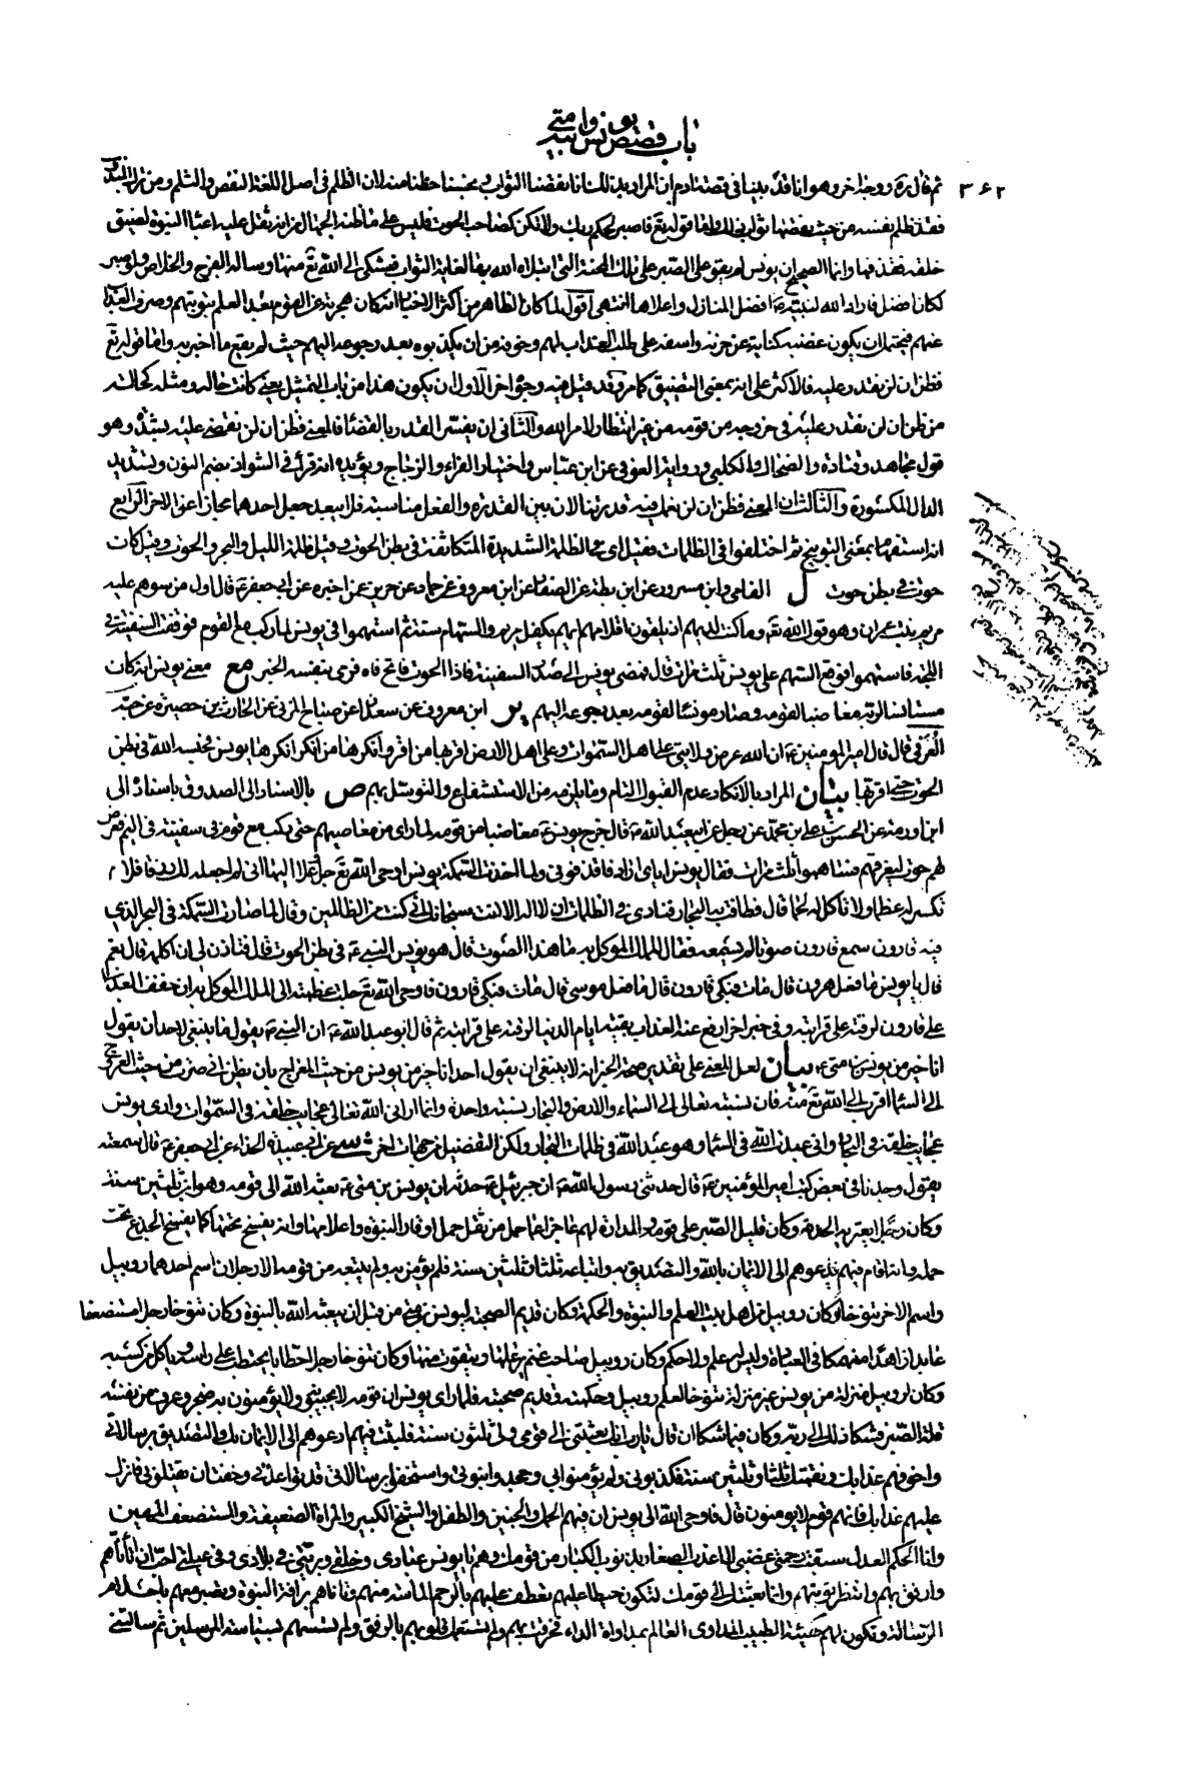 باب قصص يونس وابيه متى
٣٦٢
ثم قال ره وجها اخر وهو انا قد بينا في قصة ادم ان المراد بذلك انا نقصنا الثواب وبخسنا حظنا منه لان الظلم في اصل اللغة النقص والثلم ومن ترك المندوب
فقد ظلم نفسه من حيث نقصها ثواب ذلك واما قوله تع فاصبر لحكم ربك ولا تكن كصاحب الحوت فليس على ما ظنه الجهال من انه ثقل عليه اعباء النبوة لضيق
خلقه فقذفها وانما الصحيح ان يونس لم يقو على الصبر على تلك المحنة التي ابتلاه الله بها لغاية الثواب فشكى الى الله تع منها وساله الفرج والخلاص ولو صبر
لكان افضل فاراد الله لنبيه ص افضل المنازل واعلاها انتهى اقول لما كان الظاهر من اكثر الاخبار انه كان هجرته عن القوم بعد العلم بتوبتهم وصرف العذاب
عنهم فيحتمل ان يكون غضبه كناية عن حزنه واسفه على طلب العذاب لهم وخوفه من ان يكذبوه بعد رجوعه اليهم حيث لم يقع ما اخبر به واما قوله تع
فظن ان لن نقدر عليه فالاكثر على انه بمعنى التضييق كما مر وقد قيل فيه وجوه اخر الاول ان يكون هذا من باب التمثيل يعني كانت حاله ومثله كحالة
من ظن ان لن نقدر عليه في خروجه من قومه من غير انتظار لامر الله والثاني ان يفسر القدر بالقضاء فالمعنى فظن ان لن نقضي عليه بشدة وهو
قول مجاهد وقتادة والضحاك والكلبي ورواية العوفي عن ابن عباس واختيار الفراء والزجاج ويؤيده انه قرئ في الشواذ بضم النون وتشديد
الدال المكسورة والثالث ان المعنى فظن ان لن نعمل فيه قدرتنا لان بين القدرة والفعل مناسبة فلا يبعد جعل احدهما مجازا عن الاخر الرابع
انه استفهام بمعنى التوبيخ ثم اختلفوا في الظلمات فقيل اي في الظلمة الشديدة المتكاثفة في بطن الحوت وقيل ظلمة الليل والبحر والحوت وقيل كان
حوت في بطن حوت ل الفامي وابن مسرور عن ابن بطة عن الصفار عن ابن معروف عن حماد عن حريز عمن اخبره عن ابي جعفر ع قال اول من سوهم عليه
مريم بنت عمران وهو قول الله تع وما كنت لديهم اذ يلقون اقلامهم ايهم يكفل مريم والسهام ستة ثم استهموا في يونس لما ركب مع القوم فوقفت السفينة في
اللجة فاستهموا فوقع السهم على يونس ثلث مرات قال فمضى يونس الى صدر السفينة فاذا الحوت فاتح فاه فرمى بنفسه الخبر مع معنى يونس انه كان
مستانسا لربه مغاضبا لقومه وصار مونسا لقومه بعد رجوعه اليهم ير ابن معروف عن سعدان عن صباح المزني عن الحارث بن حصيرة عن حبة
العرني قال قال امير المومنين ع ان الله عرض ولايتي على اهل السموات وعلى اهل الارض اقر بها من اقر وانكرها من انكر انكرها يونس فحبسه الله في بطن
الحوت حتى اقر بها بيان المراد بالانكار عدم القبول التام وما يلزمه من الاستشفاع والتوسل بهم ص بالاسناد الى الصدوق باسناده الى
ابن اورمة عن الحسن بن علي بن محمد عن رجل عن ابي عبد الله ع قال خرج يونس ع مغاضبا من قومه لما راى من معاصيهم حتى ركب مع قوم في سفينة في اليم فعرض
لهم حوت ليغرقهم فساهموا ثلث مرات فقال يونس اياي اراد فاقذفوني ولما اخذت السمكة يونس اوحى الله تع جل وعلا اليها اني لم اجعله لك رزقا فلا
تكسر له عظما ولا تاكل له لحما قال فطافت به البحار فنادى في الظلمات ان لا اله الا انت سبحانك اني كنت من الظالمين وقال لما صارت السمكة في البحر الذي
فيه قارون سمع قارون صوتا لم يسمعه فقال للملك الموكل به ما هذا الصوت قال هو يونس النبي ع في بطن الحوت قال فتاذن لي ان اكلمه قال نعم
قال يا يونس ما فعل هرون قال مات فبكى قارون قال ما فعل موسى قال مات فبكى قارون فاوحى الله تع جلت عظمته الى الملك الموكل به ان خفف العذاب
على قارون لرقته على قرابته وفي خبر اخر ارفع عنه العذاب بقية ايام الدنيا لرقته على قرابته ثم قال ابو عبد الله ع ان النبي ص يقول ما ينبغي لاحد ان يقول
انا خير من يونس بن متى ع بيان لعل المعنى على تقدير صحة الخبر انه لا ينبغي ان يقول احد انا خير من يونس من حيث المعراج بان يظن اني صرت من حيث العروج
الى السماء اقرب الى الله تع منه فان نسبته تعالى الى السماء والارض والبحار نسبة واحدة وانما ارانى الله تعالى عجايب خلقه في السموات وارى يونس
عجايب خلقه في البحار واني عبدت الله في السماء وهو عبد الله في ظلمات البحار ولكن التفضيل من جهات اخر شى عن ابي عبيدة الحذاء عن ابي جعفر ع قال سمعته
يقول وجدنا في بعض كتب امير المؤمنين ع قال حدثني رسول الله ص ان جبرئيل ع حدثه ان يونس بن متى ع بعثه الله الى قومه وهو ابن ثلثين سنة
وكان رجلا يعتريه الحدة وكان قليل الصبر على قومه والمداراة لهم عاجزا عما حمل من ثقل حمل اوقار النبوة واعلامها وانه يفسخ تحتها كما يفسخ الجذع تحت
حمله وانه اقام فيهم يدعوهم الى الايمان بالله والتصديق به واتباعه ثلثا وثلثين سنة فلم يؤمن به ولم يتبعه من قومه الا رجلان اسم احدهما روبيل
واسم الاخر تنوخا وكان روبيل من اهل بيت العلم والنبوة والحكمة وكان قديم الصحبة ليونس بن متى من قبل ان يبعثه الله بالنبوة وكان تنوخا رجلا مستضعفا
عابدا زاهدا منهمكا في العبادة وليس له علم ولا حكم وكان روبيل صاحب غنم يرعاها ويتقوت منها وكان تنوخا رجلا حطابا يحتطب على راسه وياكل من كسبه
وكان لروبيل منزلة من يونس غير منزلة تنوخا لعلم روبيل وحكمته وقديم صحبته فلما راى يونس ان قومه لا يجيبونه ولا يؤمنون به ضجر وعرف من نفسه
قلة الصبر فشكا ذلك الى ربه وكان فيما شكا ان قال يا رب انك بعثتني الى قومي ولي ثلثون سنة فلبثت فيهم ادعوهم الى الايمان بك والتصديق برسالاتي
واخوفهم عذابك ونقمتك ثلثا وثلثين سنة فكذبوني ولم يؤمنوا بي وجحدوا نبوتي واستخفوا برسالاتي وقد تواعدوني وخفت ان يقتلوني فانزل
عليهم عذابك فانهم قوم لا يومنون قال فاوحى الله الى يونس ان فيهم الحمل والجنين والطفل والشيخ الكبير والمراة الضعيفة والمستضعف المهين
وانا الحكم العدل سبقت رحمتي غضبي لا اعذب الصغار بذنوب الكبار من قومك وهم يا يونس عبادي وخلقي وبريتي في بلادي وفي عيلتي احب ان اتاناهم
وارفق بهم وانتظر توبتهم وانما بعثتك الى قومك لتكون حيطا عليهم تعطف عليهم بالرحم الماسة منهم وتاناهم برافة النبوة وتصبر معهم باحلام
الرسالة وتكون لهم كهيئة الطبيب المداوي العالم بمداواة الداء فخرقت بهم ولم تستعمل قلوبهم بالرفق ولم تسسهم بسياسة المرسلين ثم سالتني